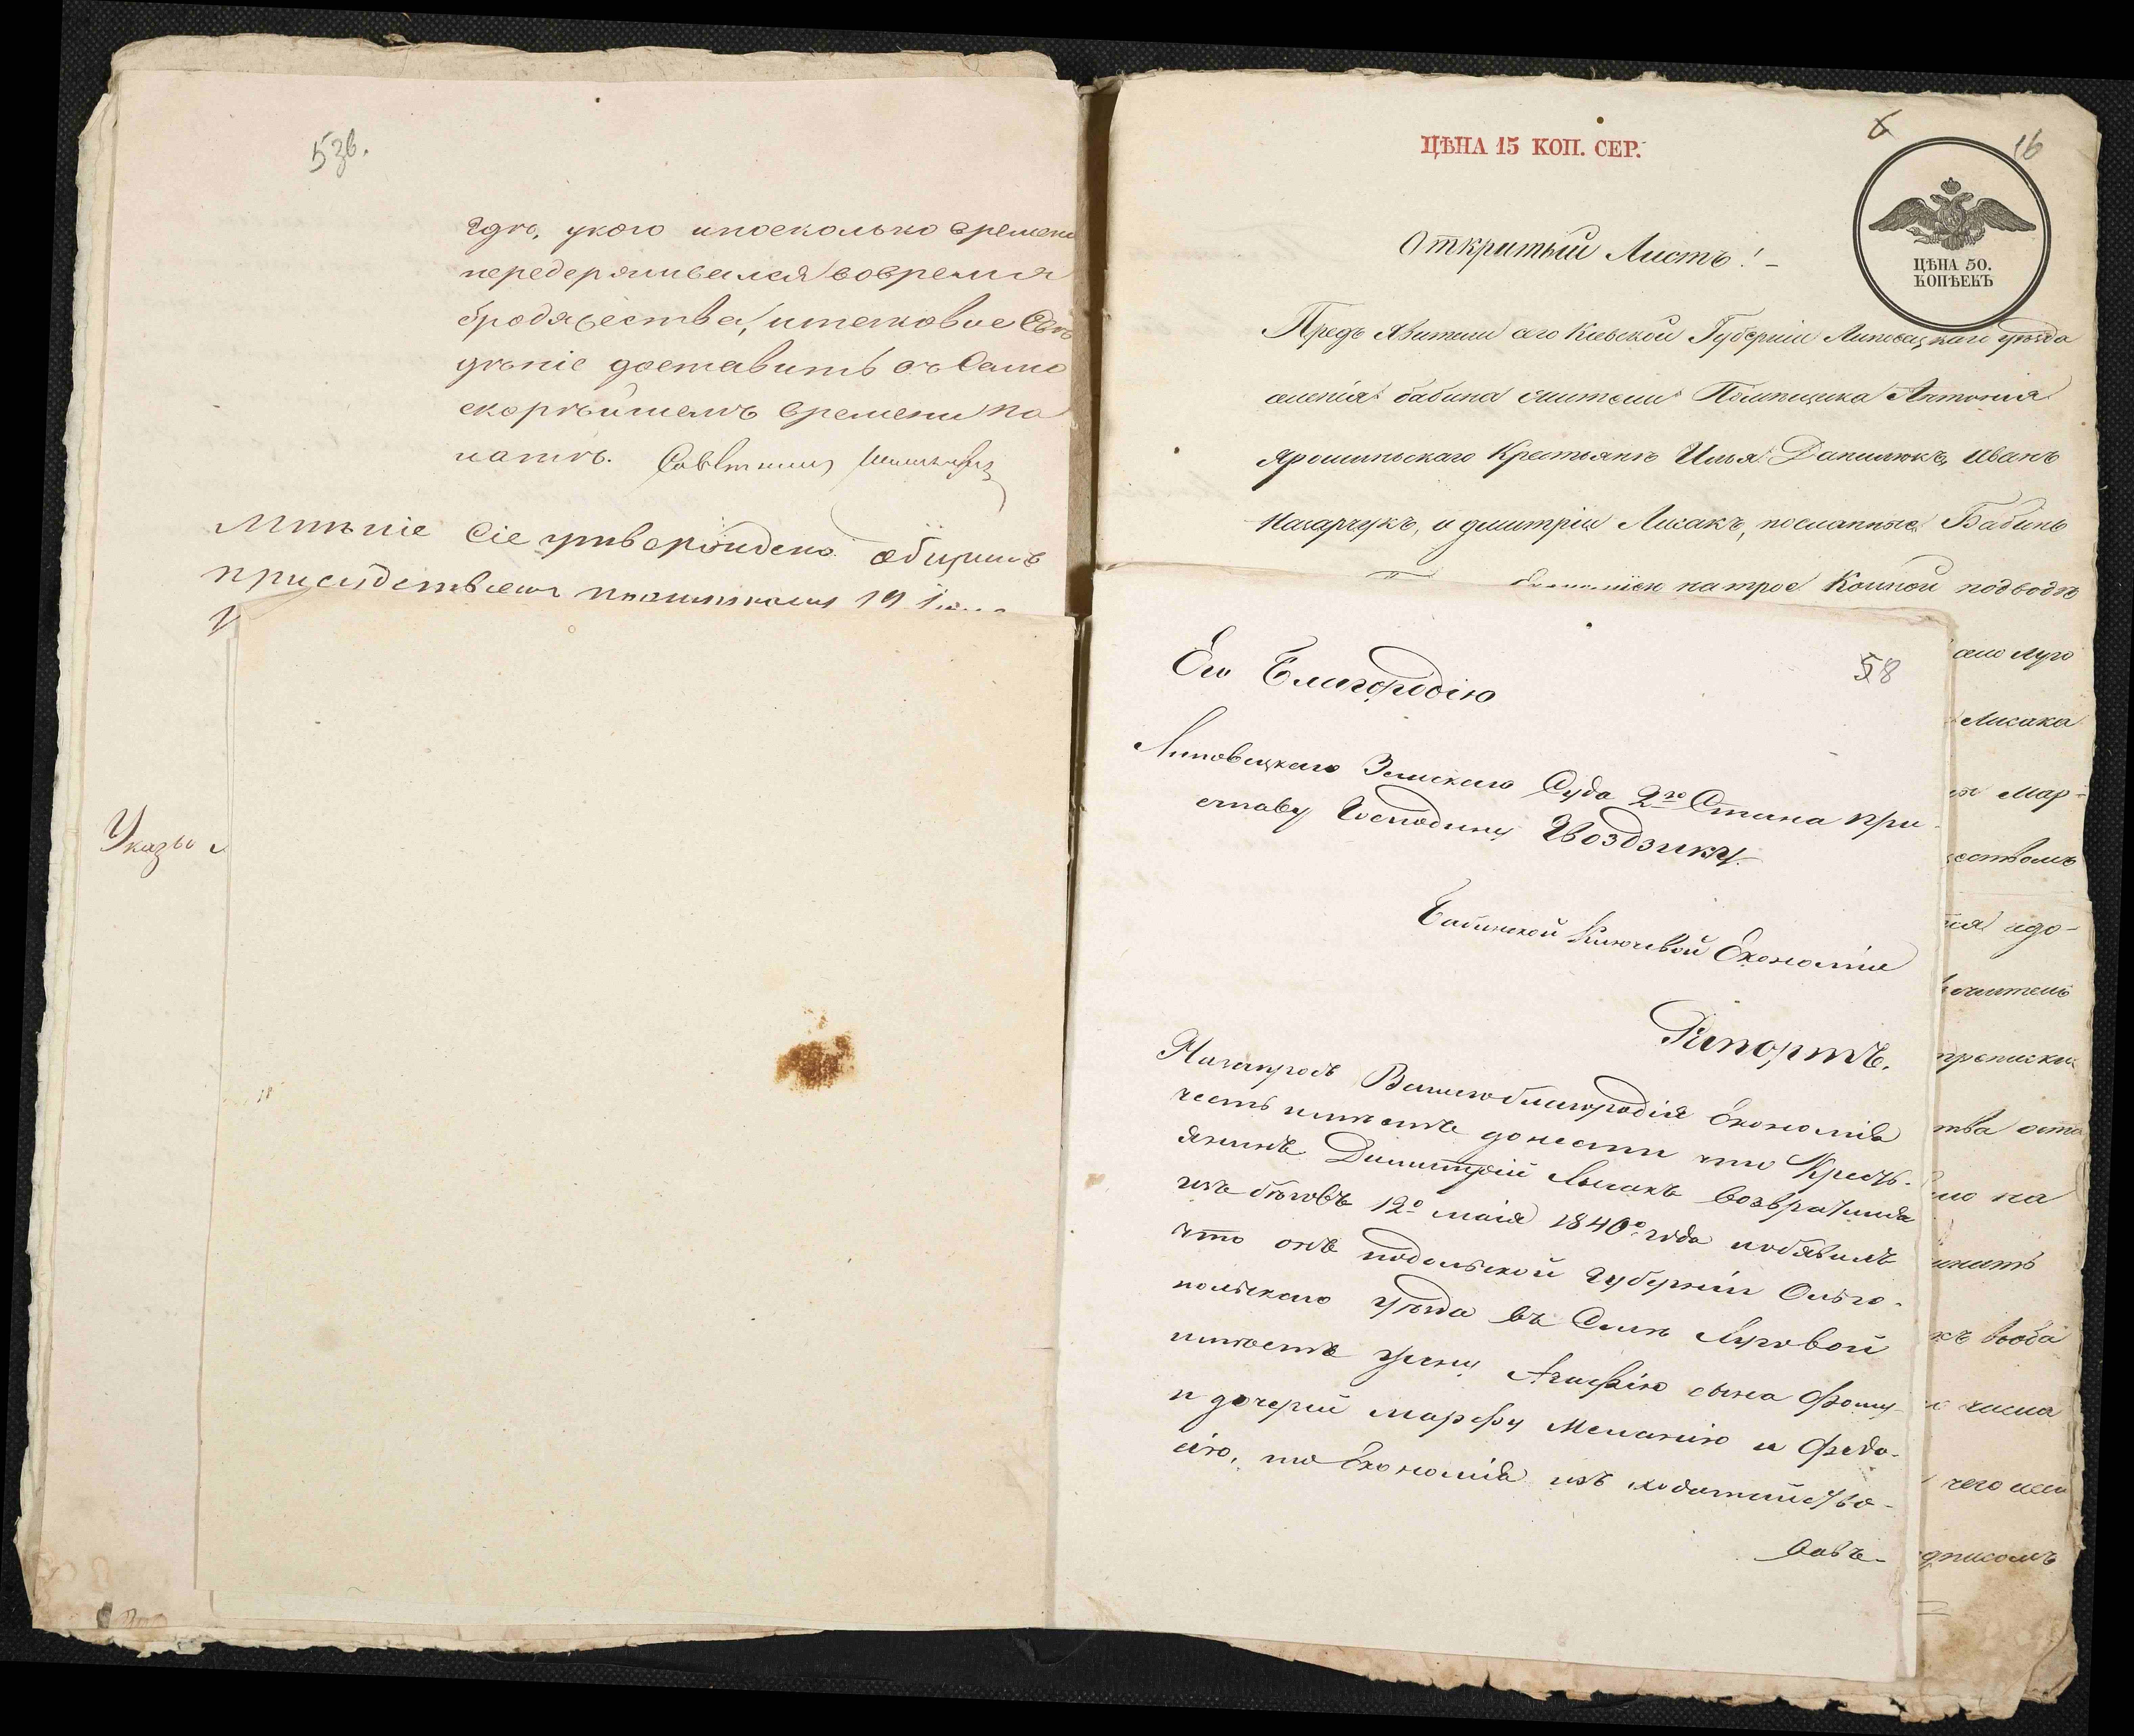 5зв.
гдѣ, укого и поскольку времени
передерживался вовремя
бродяжества, и таковые Свѣ
дѣніе доставить въ Само
скорѣйшемъ времени Па
латѣ. Совѣтникъ
Мнѣніе Сіе утверждено общимъ
присудствіемъ 19
Указъ
ЦѢНА 15 КОП. СЕР.
6
16
ЦѢНА 50.
КОПѢЕКЪ
Открытый Листъ!
Предъ явители сего Кіевской Губерніи Липовецкаго уѣзда
селенія бабина жители Помѣщика Антонія
Ярошинскаго Крестьяне Илья Данилюкъ, Иванъ
Назарчукъ, и дмитрій Лисакъ, посланные Бабин
на трое Конной подводѣ
село Луго
Лисака
Мар-
ществомъ
адо-
жители
прописки
тва оста
но на
инить
къ вооба
числа
чего
дписомъ
58
Его Благородію
Липовецкаго Земскаго Суда 2го Стана При-
ставу Господину Гвоздзику
Бабинской Ключевой Економіи
Рапортъ.
Назапросъ Вашего благородія Економія
честь имѣетъ донести что Крестъ-
янинъ Димитрій Лысакъ возвратился
изъ бѣговъ 12о маія 1840о года иобявилъ
что онъ подольской Губерніи Ольго-
польскаго уѣзда въ Селѣ Луговой
имѣетъ жену Агафію сына Фому
и дочерий марфу Меланію и Федо-
сію, то Економія ихъ ходатайство-
вавъ-